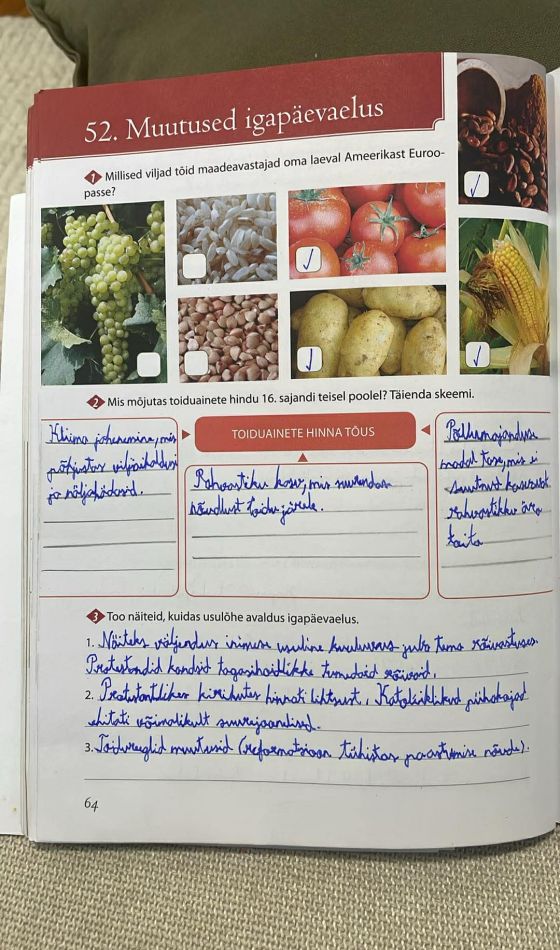 52. Muutused igapäevaelus
1 Millised viljad tõid maadeavastajad oma laeval Ameerikast Euroo-
passe?
2 Mis mõjutas toiduainete hindu 16. sajandi teisel poolel? Täienda skeemi.
Kliima jahenemine, mis
põhjustas viljaikaldusi
ja näljahädasid.
TOIDUAINETE HINNA TÕUS
Rahvastiku kasv, mis suurendas
nõudlust toidu järele.
Põllumajanduse
madal tase, mis ei
suutnud kasvavat
rahvastikku ära
toita
3 Too näiteid, kuidas usulõhe avaldus igapäevaelus.
1. Näiteks väljendus inimese usuline kuuluvus juba tema rõivastuses.
Protestandid kandsid tagasihoidlikke tumedaid rõivaid.
2. Protestantlikes kirikutes hinnati lihtsust. Katoliiklikud pühakojad
ehitati võimalikult suurejoonelised.
3. Toidureeglid muutusid (reformatsioon tühistas paastumise nõude).
64